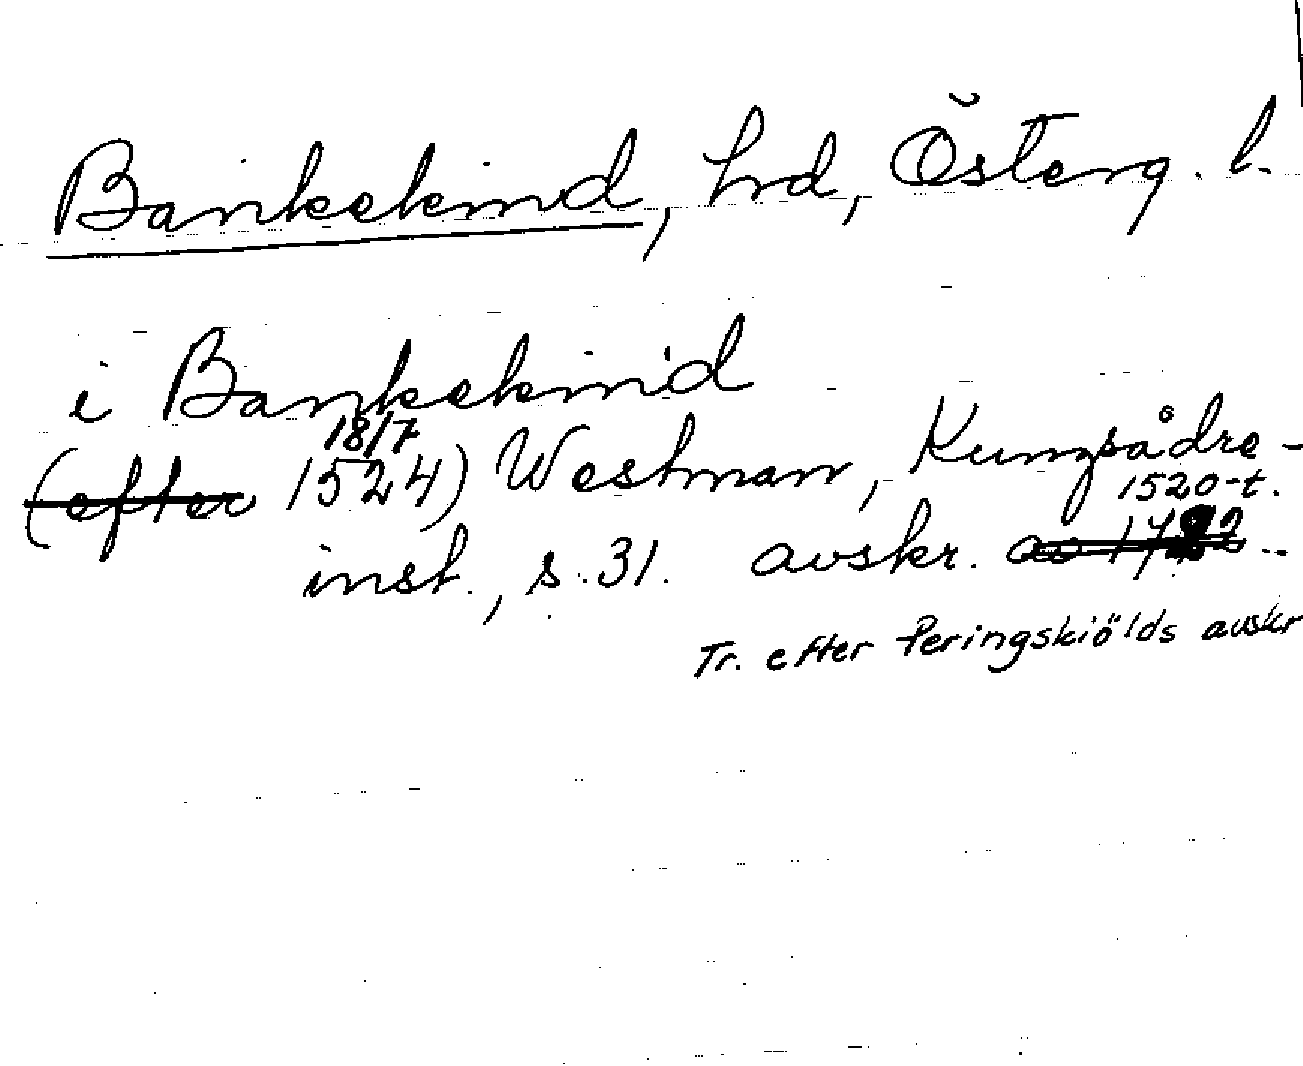 Bankekind, hd, Österg. l.
i Bankekind
18/7
(efter 1524) Westman, Kungsådre-
1520-t.
inst., s. 31. avskr. av 1792..
Tr. efter Peringskiölds avskr